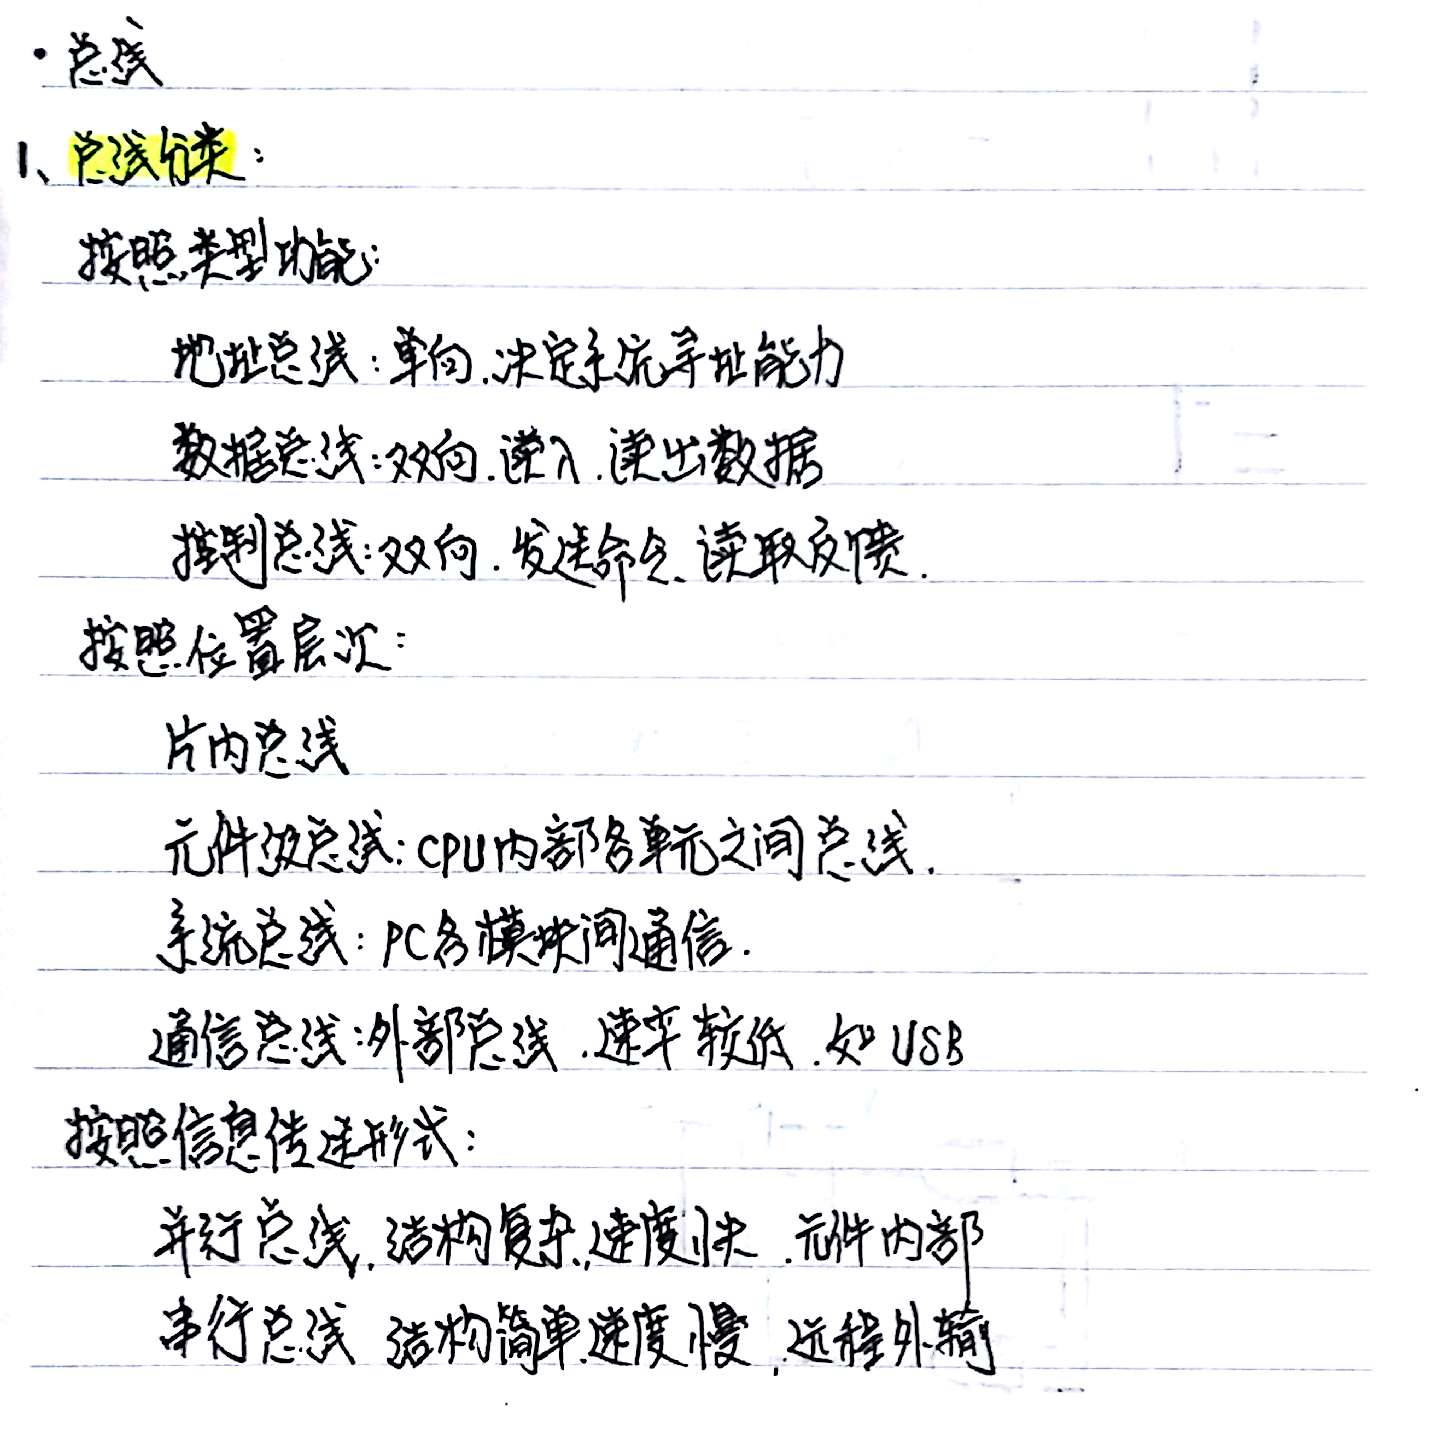 · 总线
1、总线分类：
按照类型功能：
地址总线：单向.决定系统寻址能力
数据总线：双向.读入.读出数据
控制总线：双向.发送命令、读取反馈.
按照位置层次：
片内总线
元件级总线：CPU内部各单元之间总线.
系统总线：PC各模块间通信.
通信总线：外部总线.速率较低.如USB
按照信息传送形式：
并行总线,结构复杂,速度快.元件内部
串行总线 结构简单.速度慢,远程外输